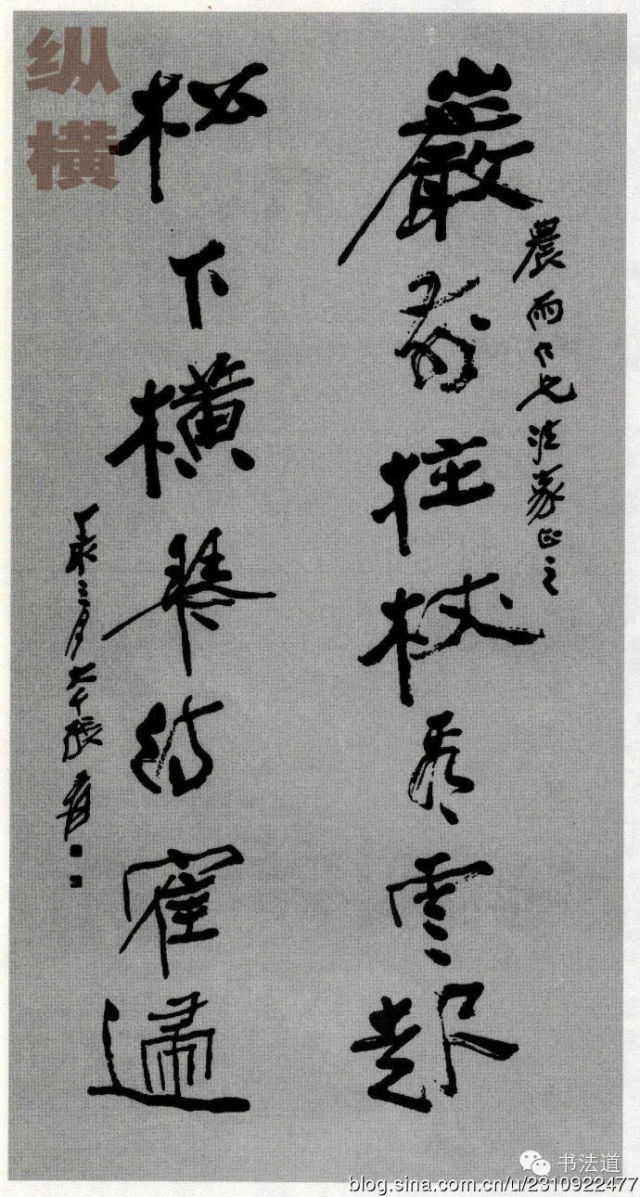 農雨仁兄法家正之
巖前拄杖看雲起
松下橫琴待鶴歸
丁亥三月大千張爰
纵横
书法道
blog.sina.com.cn/u/2310922477